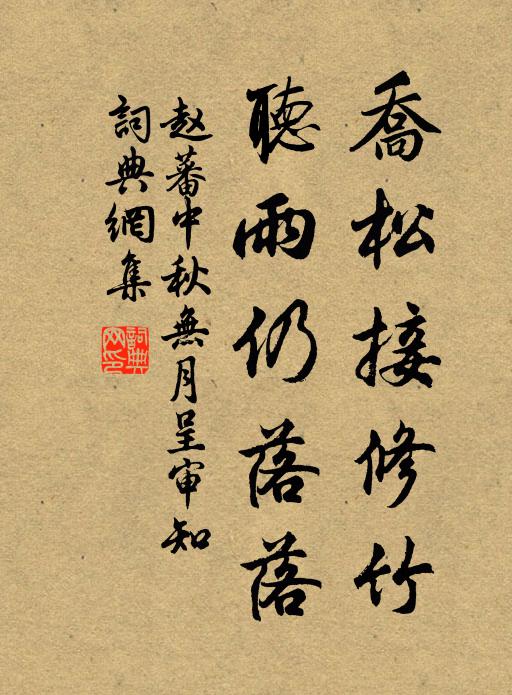 喬松接修竹
聽雨仍落落
赵蕃中秋無月呈审知
詞典網集
詞典网印